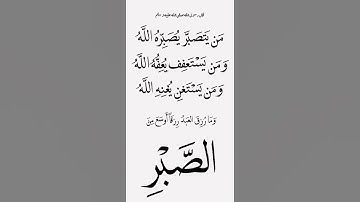 قال رسول الله صلى الله عليه و سلم
مَن يَتَصَبَّرْ يُصَبِّرْهُ اللَّهُ
وَمَن يَسْتَعْفِفْ يُعِفَّهُ اللَّهُ
وَمَن يَسْتَغْنِ يُغْنِهِ اللَّهُ
وَمَا رُزِقَ العَبدُ رِزقًا أَوسَعَ مِنَ
الصَّبْرِ